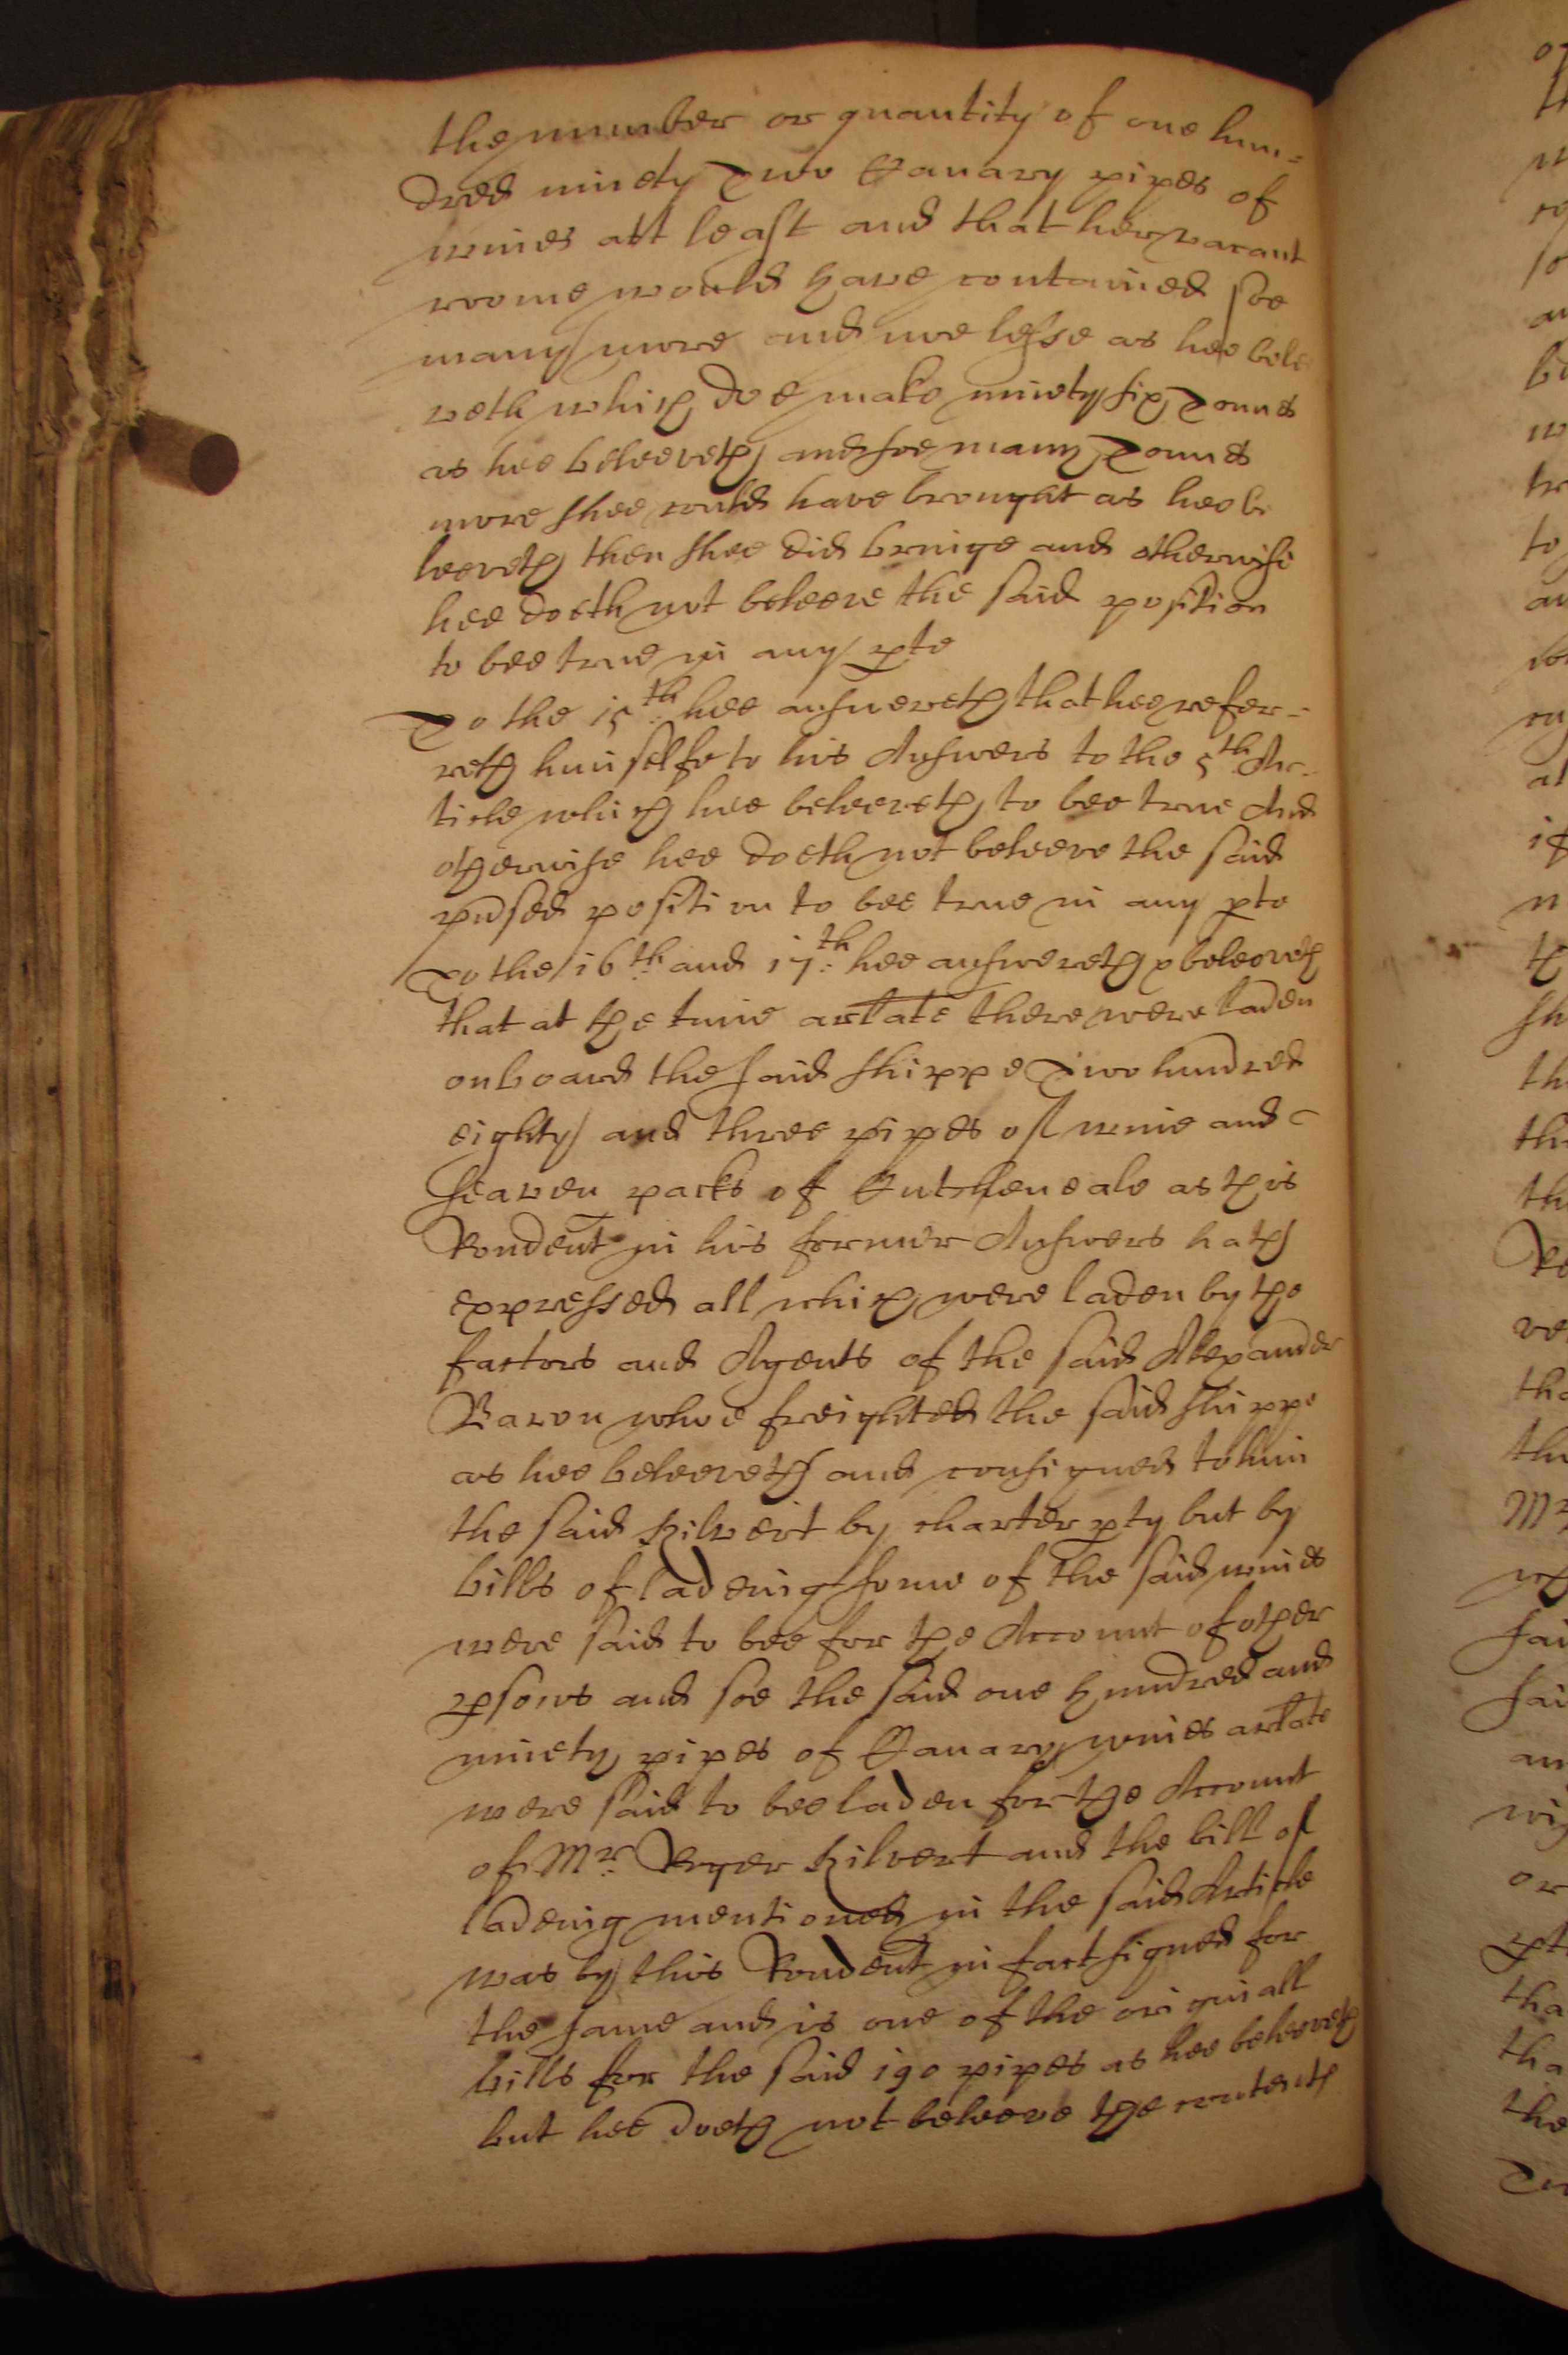 the number or quantity of one hun=
dred ninety Two Canary pipes of
wines att least and that her vacant
roome would have contained soe
many more and noe lesse as hee belee
veth which doe make ninety six Tonnes
as hee beleeveth and soe many Tonnes
more shee could have brought as hee be
leeveth then shee did bringe and otherwise
hee doeth not beleeve the said position
to bee true in any pte
To the 15th: hee answereth that hee refer=
reth himselfe to his Answers to the 5th Ar=
ticle which hee beleeveth to bee true And
otherwise hee doeth not beleeve the said
position to bee true in any pte
To the 16th: and 17th: hee answereth & beleeveth
that at the time arlate there were laden
onboard the said shippe Two hundred
eighty and three pipes of wine and
seaven packs of Cutcheneale as this
Rondent in his former Answers hath
expressed all which were laden by the
factors and Agents of the said Alexander
Baron whoe freighted the said shippe
as hee beleeveth and consigned to him
the said Kilvert by charter pty but by
bills of ladeing some of the said wines
were said to bee for the Account of other
psons and soe the said one hundred and
ninety pipes of Canary wines arlate
were said to bee laden for the Account
of Mr: Roger Kilvert and the bill of
ladeing mentioned in the said Article
was by this Rondent in fact signed for
the same and is one of the originall
bills for the said 190 pipes as hee beleeveth
but hee doeth not beleeve the contents